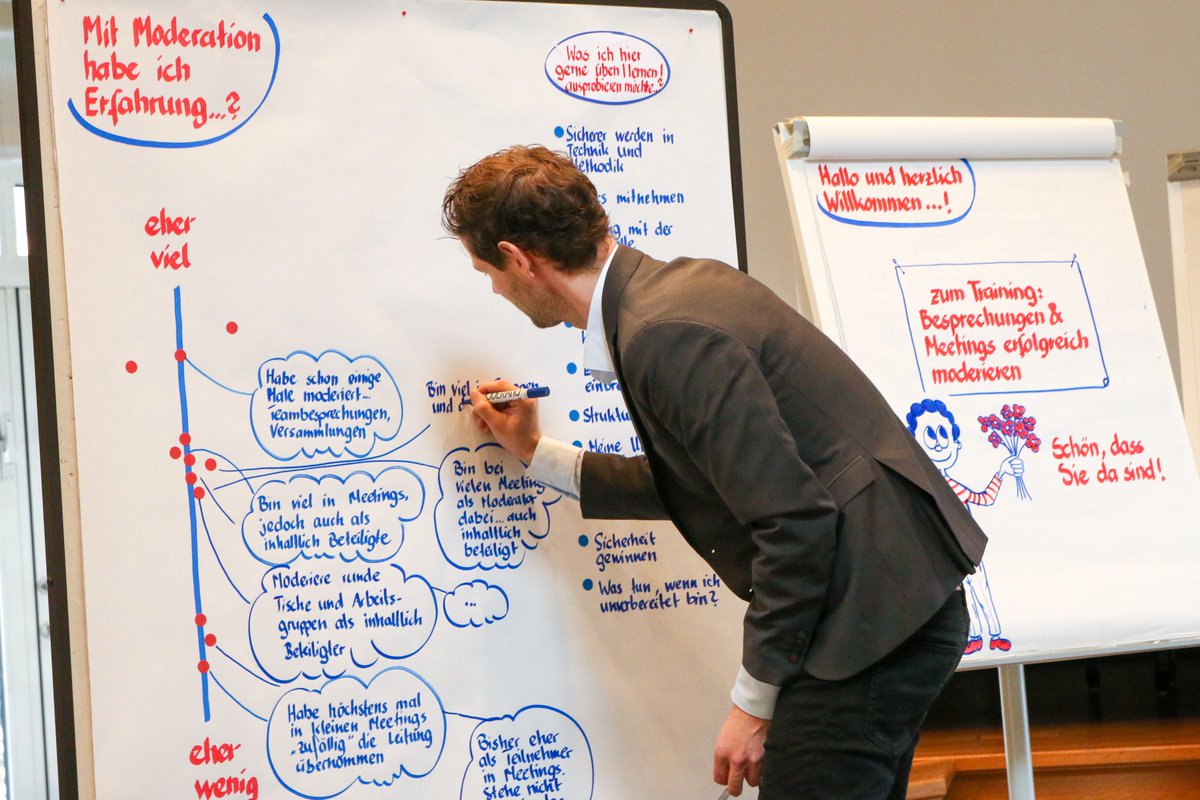 Mit Moderation
habe ich
Erfahrung...?
eher
viel
Habe schon einige
Male moderiert...
Teambesprechungen,
Versammlungen
Bin viel
und
Bin viel in Meetings,
jedoch auch als
inhaltlich Beteiligte
Bin bei
vielen Meeting
als Moderator
dabei... auch
inhaltlich
beteiligt
Moderiere runde
Tische und Arbeits-
gruppen als inhaltlich
Beteiligter
...
Habe höchstens mal
in kleinen Meetings
"zufällig" die Leitung
übernommen
Bisher eher
als Teilnehmer
in Meetings.
Stehe nicht
eher
wenig
Was ich hier
gerne üben/lernen/
ausprobieren möchte..?
Sicherer werden in
Technik und
Methodik
mitnehmen
mit der
Struktur
Meine
Sicherheit
gewinnen
Was tun, wenn ich
unvorbereitet bin?
Hallo und herzlich
Willkommen...!
zum Training:
Besprechungen &
Meetings erfolgreich
moderieren
Schön, dass
Sie da sind!